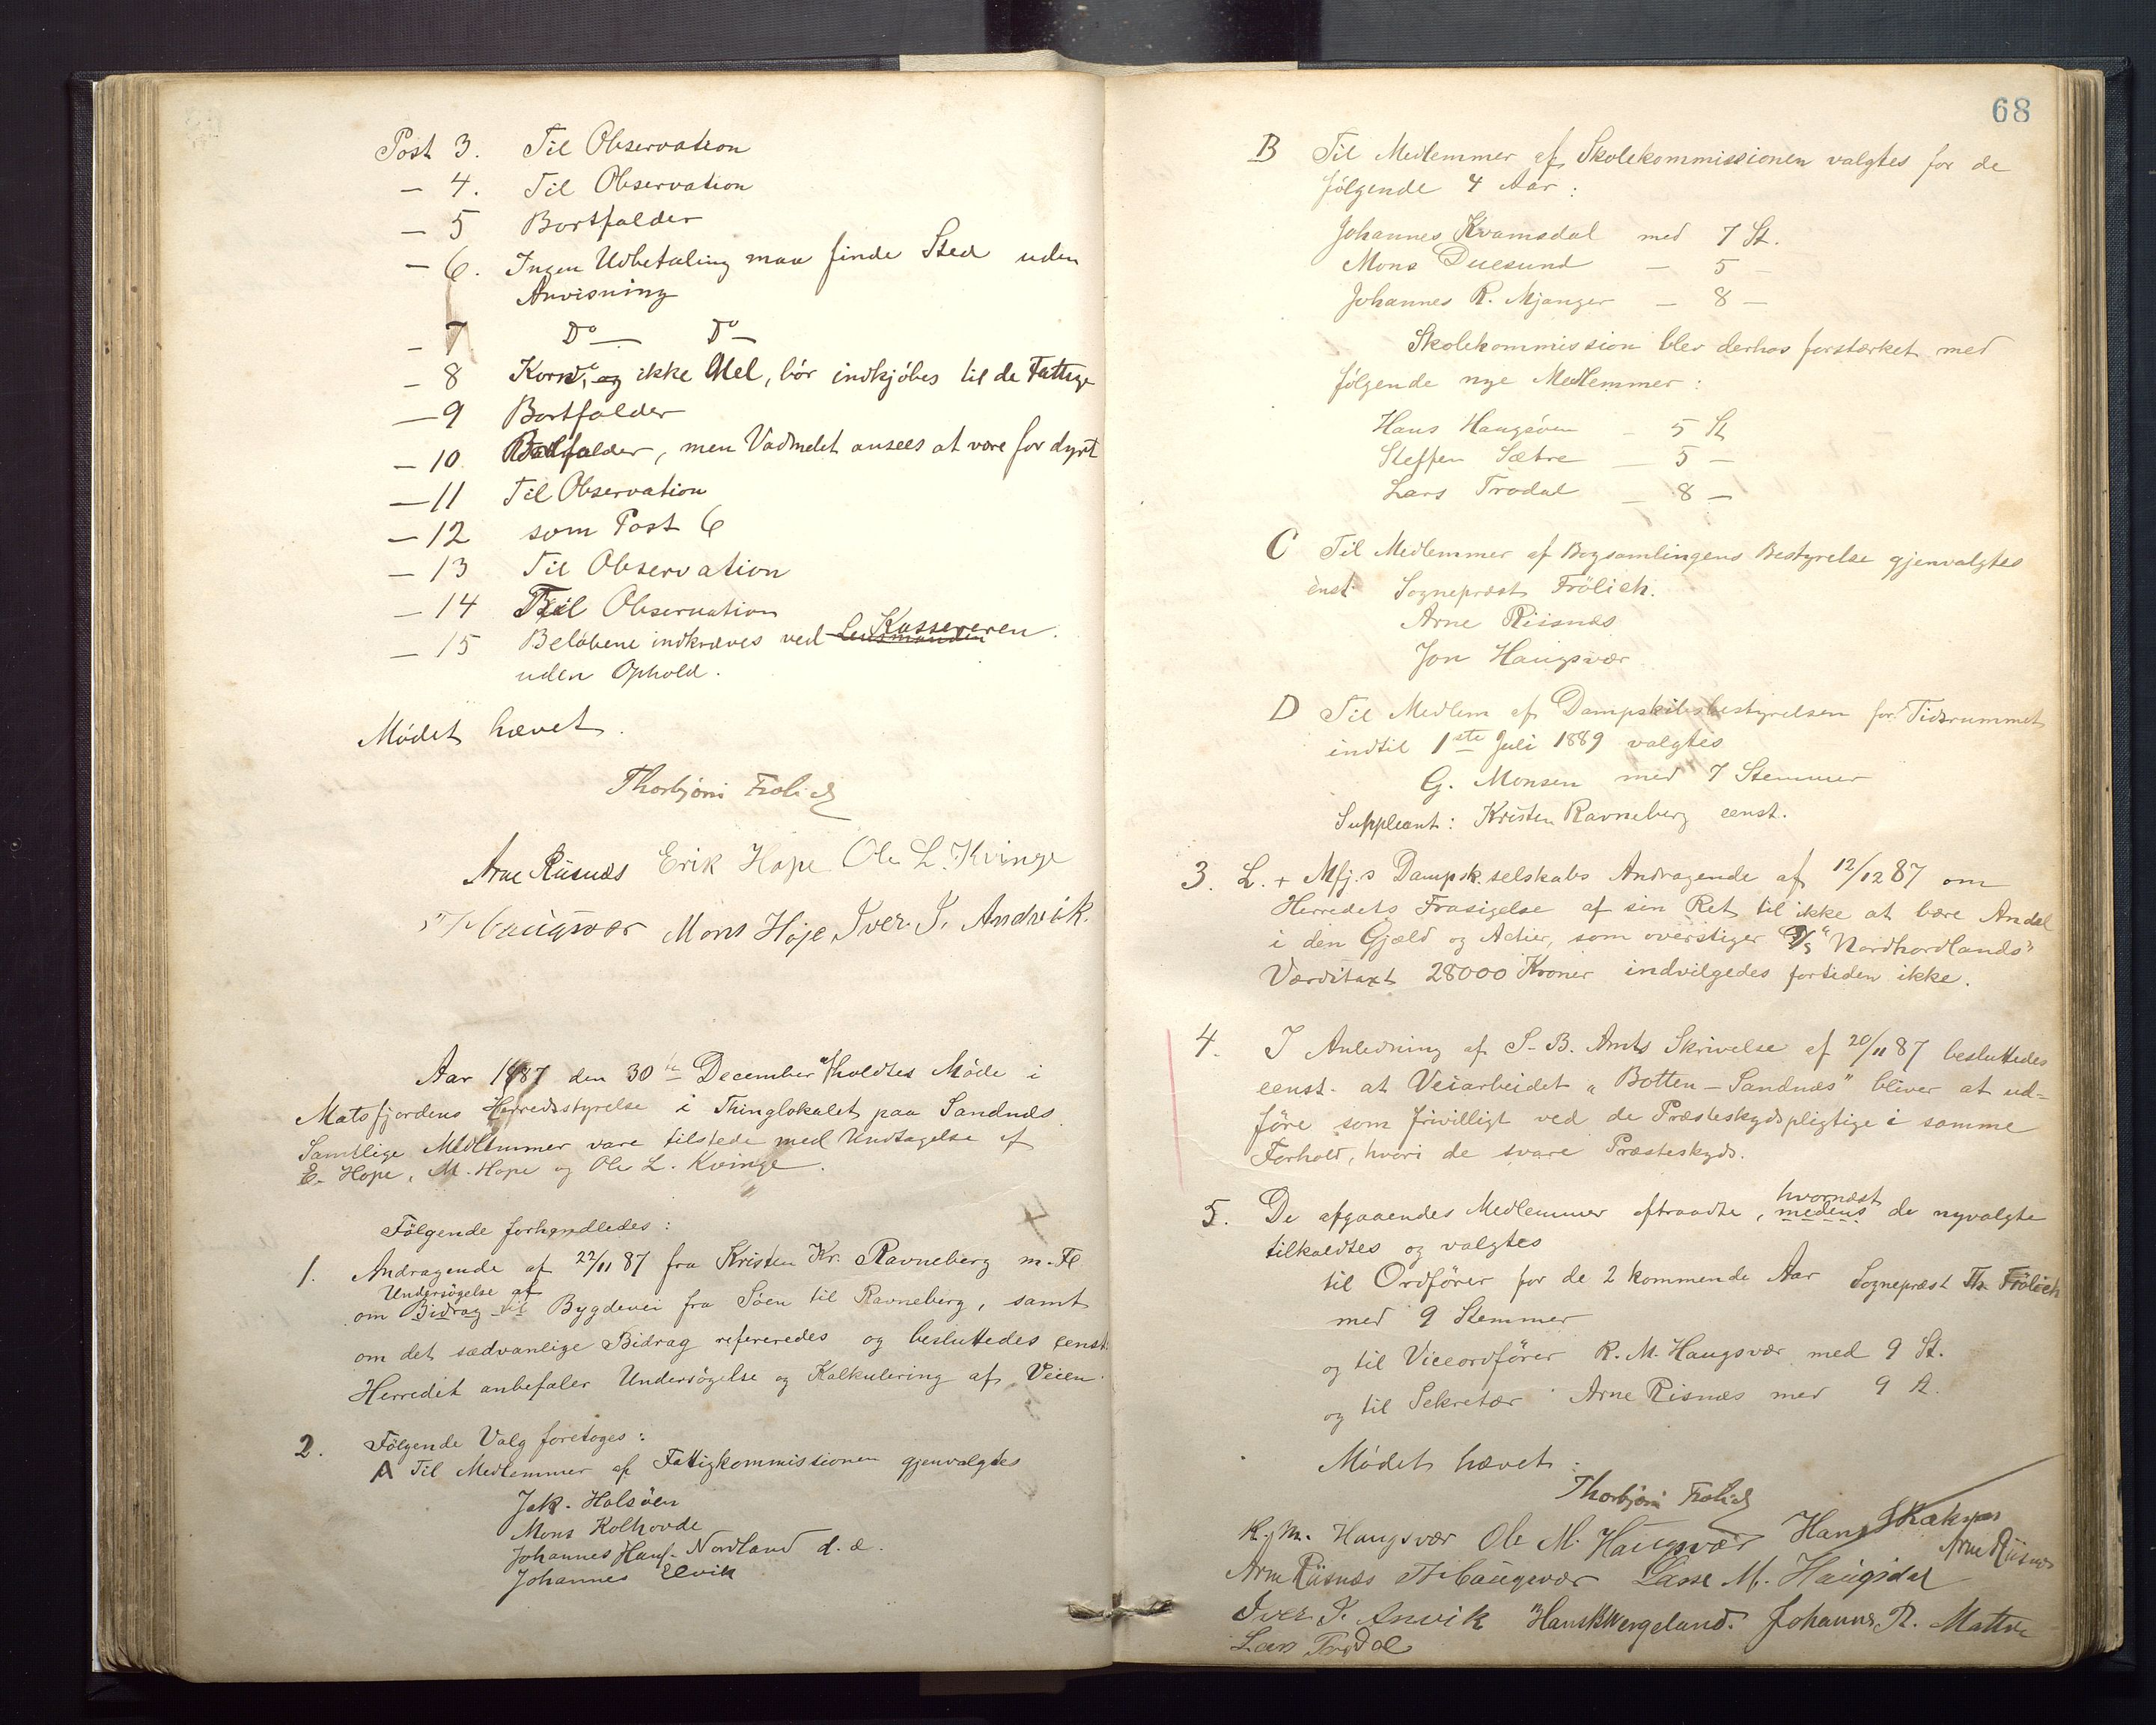 Post 3. Til Observation
— 4. Til Observation
— 5 Bortfalder
— 6. Ingen Udbetaling maa finde Sted uden
Anvisning
— 7 Do — Do —
— 8 Korn, og ikke Mel, bör indkjöbes til de Fattige
— 9 Bortfalder
— 10 Bortfalder, men Vadmelet ansees at være for dyrt
— 11 Til Observation
— 12 som Post 6
— 13 Til Observation
— 14 Til Observation
— 15 Belöbene indkræves ved Lensmanden Kassereren.
uden Ophold.
Mödet hævet.
Thorbjörn Frölich
Arne Riisnæs Erik Hope Ole L. Kvinge
Haugsvær Mons Hope Iver. I. Andvik.
Aar 1887 den 30te December afholdtes Möde i
Matsfjordens Herredsstyrelse i Thinglokalet paa Sandnæs.
Samtlige Medlemmer vare tilstede med Undtagelse af
E. Hope, M. Hope og Ole L. Kvinge.
Fölgende forhandledes:
1. Andragende af 22/11 87 fra Kristen Kr. Ravneberg m. Fl
Undersögelse af
om Bidrag til Bygdevei fra Söen til Ravneberg, samt
om det sædvanlige Bidrag refereredes og besluttedes eenst.
Herredet anbefaler Undersögelse og Kalkulering af Veien.
2. Fölgende Valg foretoges:
A Til Medlemmer af Fattigkommissionen gjenvalgtes
Jak. Halsöen
Mons Kolhovde
Johannes Hans. Nordland d. æ.
Johannes Elvik
68
B Til Medlemmer af Skolekommissionen valgtes for de
fölgende 4 Aar:
Johannes Kvamsdal med 7 St.
Mons Duesund — 5 —
Johannes R. Mjanger — 8 —
Skolekommission blev derhos forstærket med
fölgende nye Medlemmer:
Hans Haugsöen — 5 St
Steffen Sætre — 5 —
Lars Trodal — 8 —
C Til Medlemmer af Bogsamlingens Bestyrelse gjenvalgtes
enst. Sognepræst Frölich.
Arne Riisnæs
Jon Haugsvær
D Til Medlem af Dampskibsbestyrelsen for Tidsrummet
indtil 1ste Juli 1889 valgtes
G. Monsen med 7 Stemmer
Suppleant: Kristen Ravneberg eenst.
3. L. + Mfj.s Dampsk.selskabs Andragende af 12/12 87 om
Herredets Frasigelse af sin Ret til ikke at bære Andel
i den Gjæld og Actier, som overstiger D/S "Nordhordlands"
Værditaxt 28000 Kroner indvilgedes fortiden ikke.
4. I Anledning af S. B. Amts Skrivelse af 20/11 87 besluttedes
eenst. at Veiarbeidet "Botten – Sandnæs" bliver at ud=
före som frivilligt ved de Præsteskydspligtige i samme
Forhold, hvori de svare Præsteskyds.
hvornæst
5. De afgaaendes Medlemmer aftraadte, medens de nyvalgte
tilkaldtes og valgtes
til Ordförer for de 2 kommende Aar Sognepræst Th Frölich
med 9 Stemmer
og til Viceordförer R. M. Haugsvær med 9 St.
og til Sekretær Arne Risnæs med 9 St.
Mödet hævet:
Thorbjörn Frölich
R. M. Haugsvær Ole M. Haugsvær Hans
Arne Riisnæs
Arne Riisnæs Haugsvær Lasse M. Haugsdal
Iver I. Anvik Hans K Wergeland. Johannes R. Mattre
Lars Trodal